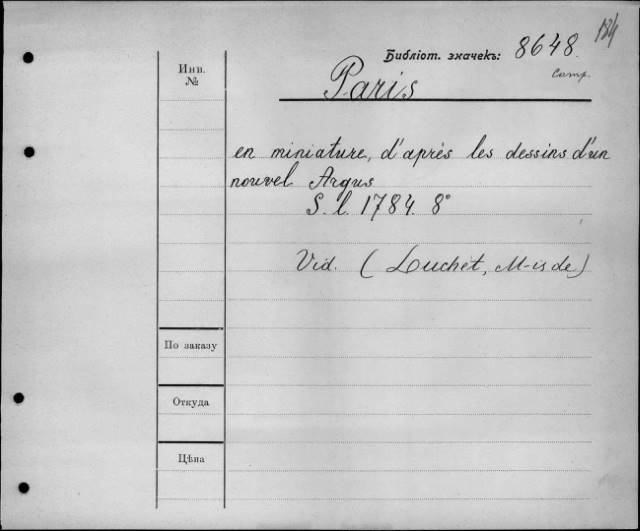 184
Библіот. значекъ: 8648.
Camp.
Инв.
№
Paris
en miniature, d'après les dessins d'un
nouvel Argus
S. l. 1784. 8°
Vid. (Luchet, M-is de)
По заказу
Откуда
Цѣна